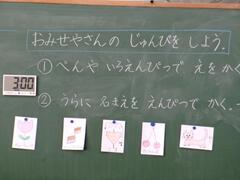 おみせやさんの じゅんびを しよう。
① ぺんや いろえんぴつで えを かく
3:00
② うらに 名まえを えんぴつで かく。